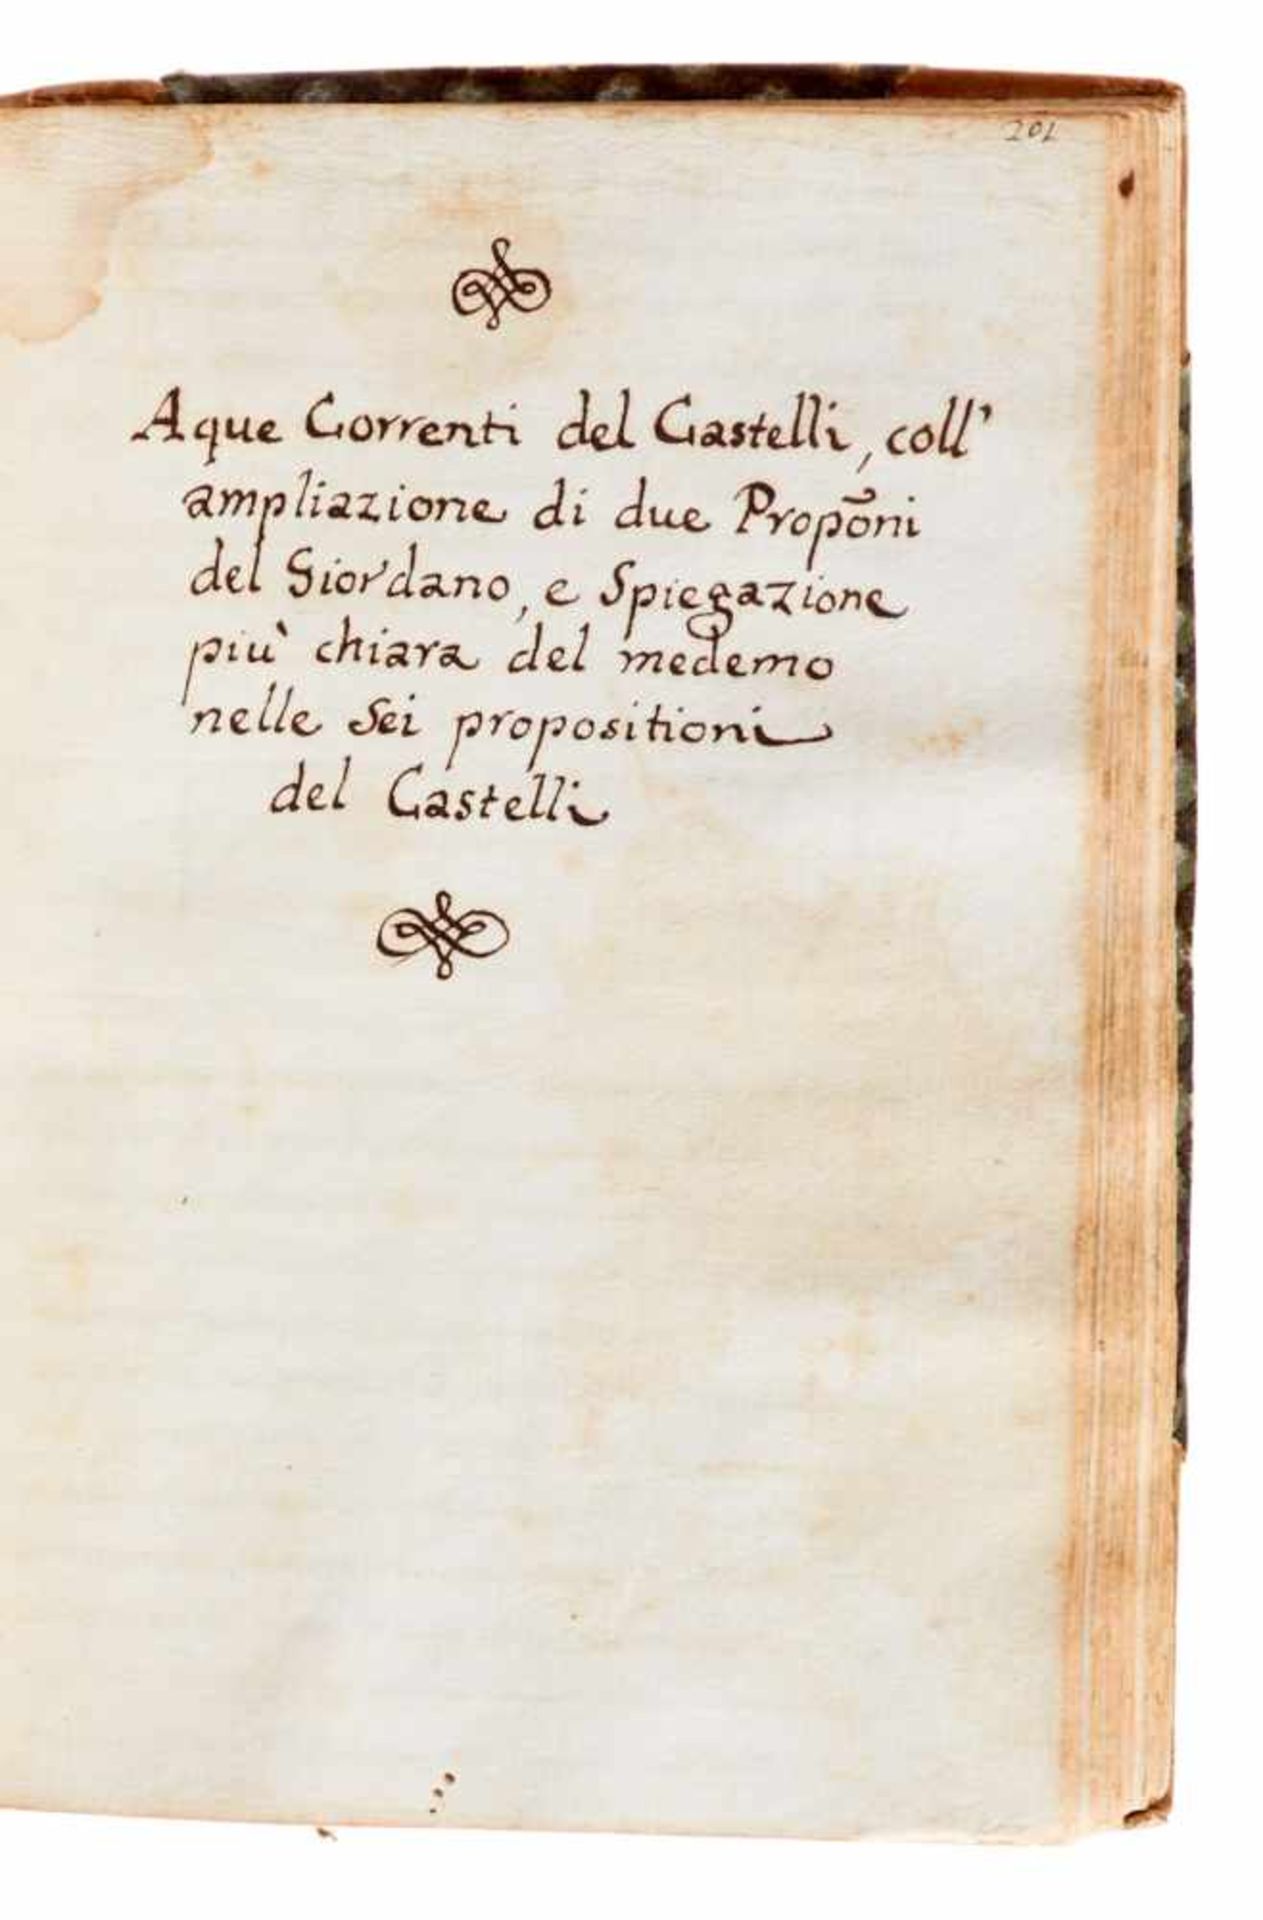 201
Aque Correnti del Castelli, coll'
ampliazione di due Propōni
del Giordano, e Spiegazione
più chiara del medemo
nelle sei propositioni
del Castelli